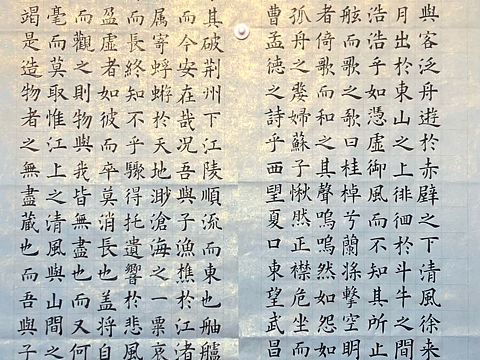 與客泛舟遊於赤壁之下清風徐來
月出於東山之上徘徊於斗牛之間
浩浩乎如憑虛御風而不知其所止
舷而歌之歌曰桂棹兮蘭槳擊空明
者倚歌而和之其聲嗚嗚然如怨如
孤舟之嫠婦蘇子愀然正襟危坐而
曹孟德之詩乎西望夏口東望武昌
其破荆州下江陵順流而東也舳艫
而今安在哉况吾與子漁樵於江渚
属寄蜉蝣於天地渺滄海之一粟哀
而長終知不乎驟得托遺響於悲風
盈虛者如彼而卒莫消長也盖將自
而觀之則物與我皆無盡也而又何
毫而莫取惟江上之清風與山間之
竭是造物者之無盡藏也而吾與子